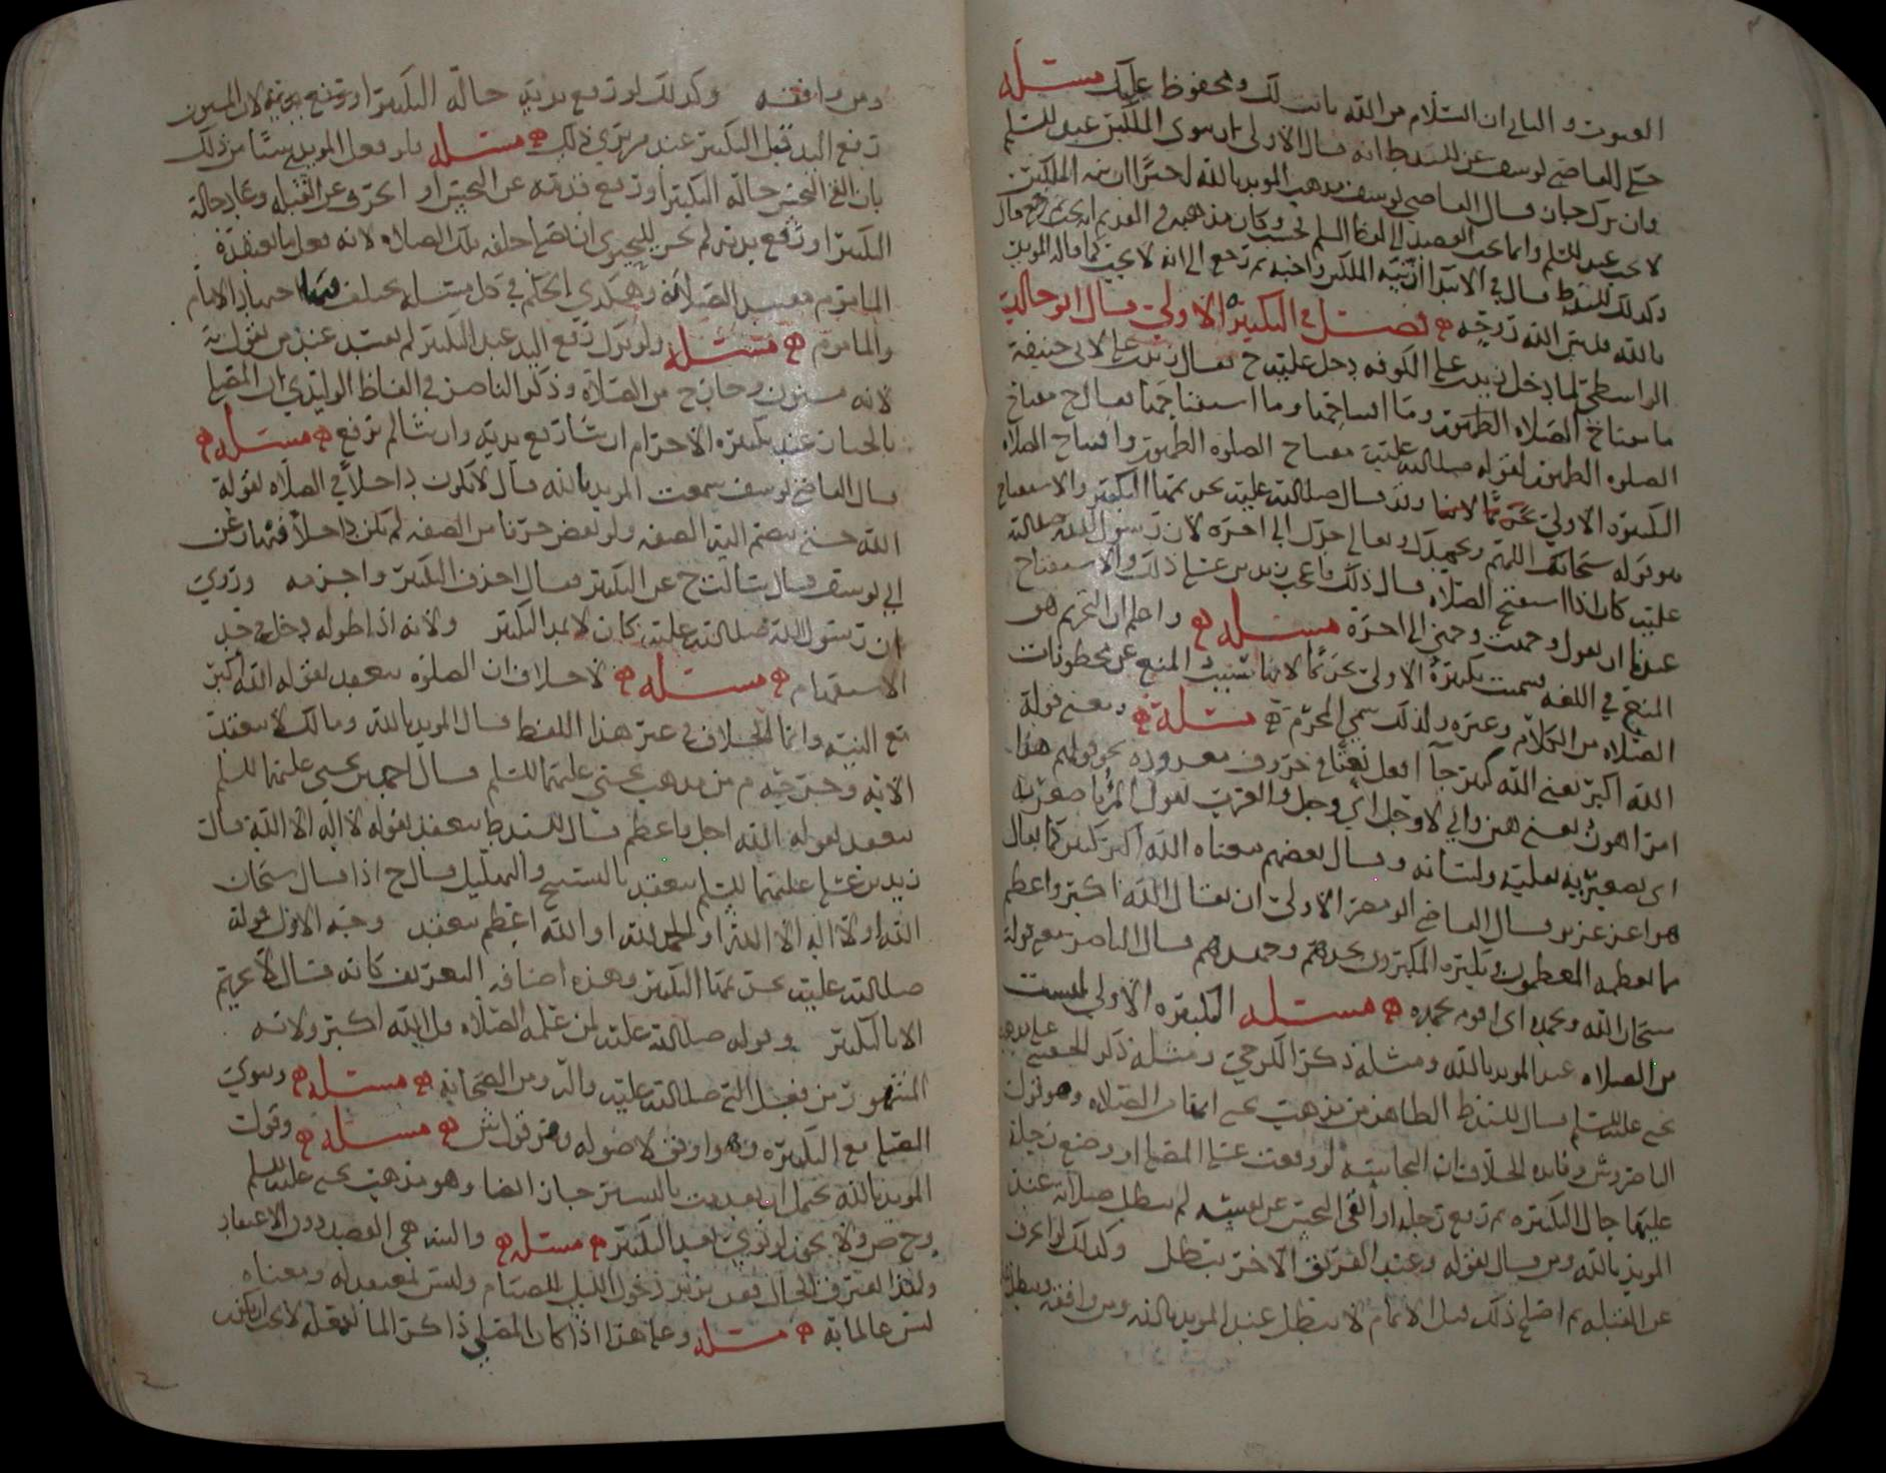 العيوب والثاني ان السلام من الله بانت لك ومحفوظ عليك مسئله
حكى القاضي يوسف عن للسيد ط انه قال الاولى ان ينوي الملكين عند التسليم
وان ترك جاز قال القاضي يوسف مذهب المويد بالله لم
لا يجب عند التسليم وانما يجب القصد الى لفظ السلم فحسب وكان مذهبه في القديم انه يجب ثم رجع قال
وكذلك للسيد ط قال في الابتدا ان نية الملكين واجبه ثم رجع الى انه لا يجب كما قاله المويد
بالله قدس الله روحه فصل في التكبيرة الاولى قال ابو خالد
الواسطي لما دخل زيد بن علي الكوفه دخل عليه ح فقال زيد بن علي لابي حنيفة
ما مفتاح الصلاه الطهور وما افتتاحها وما استفتاحها فقال ح مفتاح
الصلوه الطهور لقوله صلى الله عليه مفتاح الصلوه الطهور وافتتاح الصلاه
التكبيره الاولى لانها وقد قال صلى الله عليه تحريمها التكبير والاستفتاح
هو قوله سبحانك اللهم وبحمدك وتعالى جدك الى اخره لان رسول الله صلى الله
عليه كان اذا استفتح الصلاه قال ذلك فاعجب زيد بن علي ذلك والاستفتاح
عندنا ان يقول وجهت وجهي الى اخره مسئله واعلم ان التحريم هو
المنع في اللغه سميت تكبيرة الاولى تحريما لانها تثبت المنع عن محظورات
الصلاه من الكلام وغيره ولذلك سمي المحرم مسئلة ومعنى قوله
الله اكبر يعنى الله كبير جا افعل نعتا في حروف معدوده نحو قولهم هذا
امر اهون بمعنى هين واني لاوجل اي وجل والعرب تقول المرء باصغريه
اي بصغيريه بقلبه ولسانه وقال بعضهم معناه الله اكبر كبير كما يقال
هو اعز عزيز قال القاضي ابو مضر الاولى ان يقال الله اكبر واعظم
مما يعظمه المعظمون ويكبره المكبرون بحدهم وحمدهم قال الناصر معنى قوله
سبحان الله وبحمده اي اقوم بحمده مسئله التكبيره الاولى ليست
من الصلاه عند المويد بالله ومثله ذكر الكرخي ومثله ذكر الحقيني على مذهب
يحيى عليه السلم قال للسيد ط الظاهر من مذهب يحيى انها من الصلاه وهو قول
الناصر وش وفايده الخلاف ان النجاسه لو وقعت على المصلي او وضع رجله
عليها حال التكبيره ثم رفع رجله او القى النجس عن نفسه لم تبطل صلاته عند
المويد بالله ومن قال بقوله وعند الفريق الاخر تبطل وكذلك لو انحرف
عن القبله ثم اصلح ذلك قبل الاتمام لا تبطل عند المويد بالله ومن وافقه وتبطل
ومن وافقه وكذلك لو رفع يديه حالة التكبير او رفع لان المسنون
رفع اليد قبل التكبير عند من يرى ذلك مسئله فلو فعل المويدي شيئا من ذلك
بان القى النجس حالة التكبير او رفع قدمه عن النجس او انحرف عن القبله وعاد حالة
التكبير او رفع يديه لم يجز لليحيوي ان يصلي خلفه تلك الصلاه لانه فعل ما يعتقده
الماموم مفسدا لصلاته وهكذي الحكم في كل مسئله يختلف فيها اجتهاد الامام
والماموم مسئله ولو ترك رفع اليد عند التكبير لم تفسد عند من يقول به
لانه مسنون وخارج من الصلاة وذكر الناصر في الفاظ الوليدي ان المصلي
بالخيار عند تكبيرة الاحرام ان شا رفع يديه وان شا لم يرفع مسئله
قال القاضي يوسف سمعت المويد بالله قال لا يكون داخلا في الصلاه لقوله
الله حتى يضم اليه الصفه ولو نقص حرفا من الصفه لم يكن داخلا فيها وعن
ابي يوسف قال سالت ح عن التكبير فقال احذف التكبير واجزمه وروي
ان رسول الله صلى الله عليه كان لا يمد التكبير ولانه اذا طوله دخل في حد
الاستفهام مسئله لا خلاف ان الصلوه تنعقد بقوله الله اكبر
مع النيه وانما الخلاف في غير هذا اللفظ قال المويد بالله ومالك لا تنعقد
الا به وخرجه م من مذهب يحيى عليهما السلم قال احمد بن يحيى عليهما السلم
تنعقد بقوله الله اجل واعظم قال للسيد ط تنعقد بقوله لا اله الا الله قال
زيد بن علي عليهما السلم تنعقد بالتسبيح والتهليل قال ح اذا قال سبحان
الله او لا اله الا الله او الحمد لله او الله اعظم تنعقد وجه الاول قوله
صلى الله عليه تحريمها التكبير وهذه اضافه التعريف كانه قال لا تحريم
الا بالتكبير وقوله صلى الله عليه لمن علمه الصلاه قل الله اكبر ولانه
المشهور من فعل النبي صلى الله عليه واله ومن الصحابه مسئله وينوي
المصلي مع التكبيره وهو اوفق لاصوله وهو قول ش مسئله وقول
المويد بالله يحتمل ان تقدمت باليسير جاز ايضا وهو مذهب يحيى عليه السلم
وح وص ولا يجوز لو نوى بعد التكبير مسئله والنيه هي القصد دون الاعتقاد
ولهذا يفترق الحال فقد يريد دخول الليل للصيام وليس بمعتقد له ومعناه
ليس عالما به مسئله وعلى هذا اذا كان المصلي ذاكرا لما يفعله لا